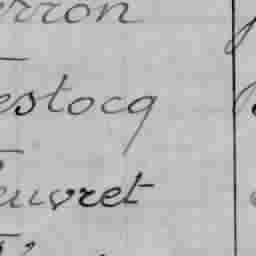 erron
estocq
euvret